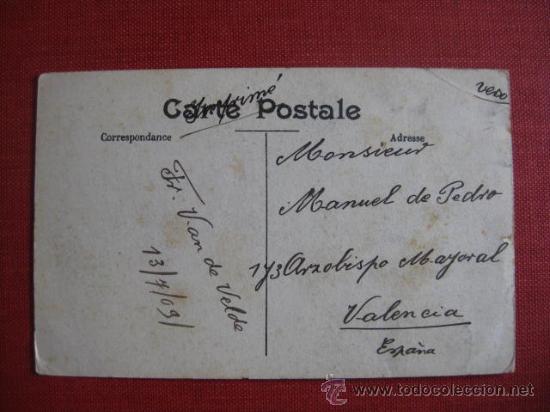 vero
Imprimé
Carte Postale
Correspondance
Adresse
Fr. Van de Velde
13/7/09
Monsieur
Manuel de Pedro
1y3 Arzobispo Mayoral
Valencia
España
todocoleccion
www.todocoleccion.net